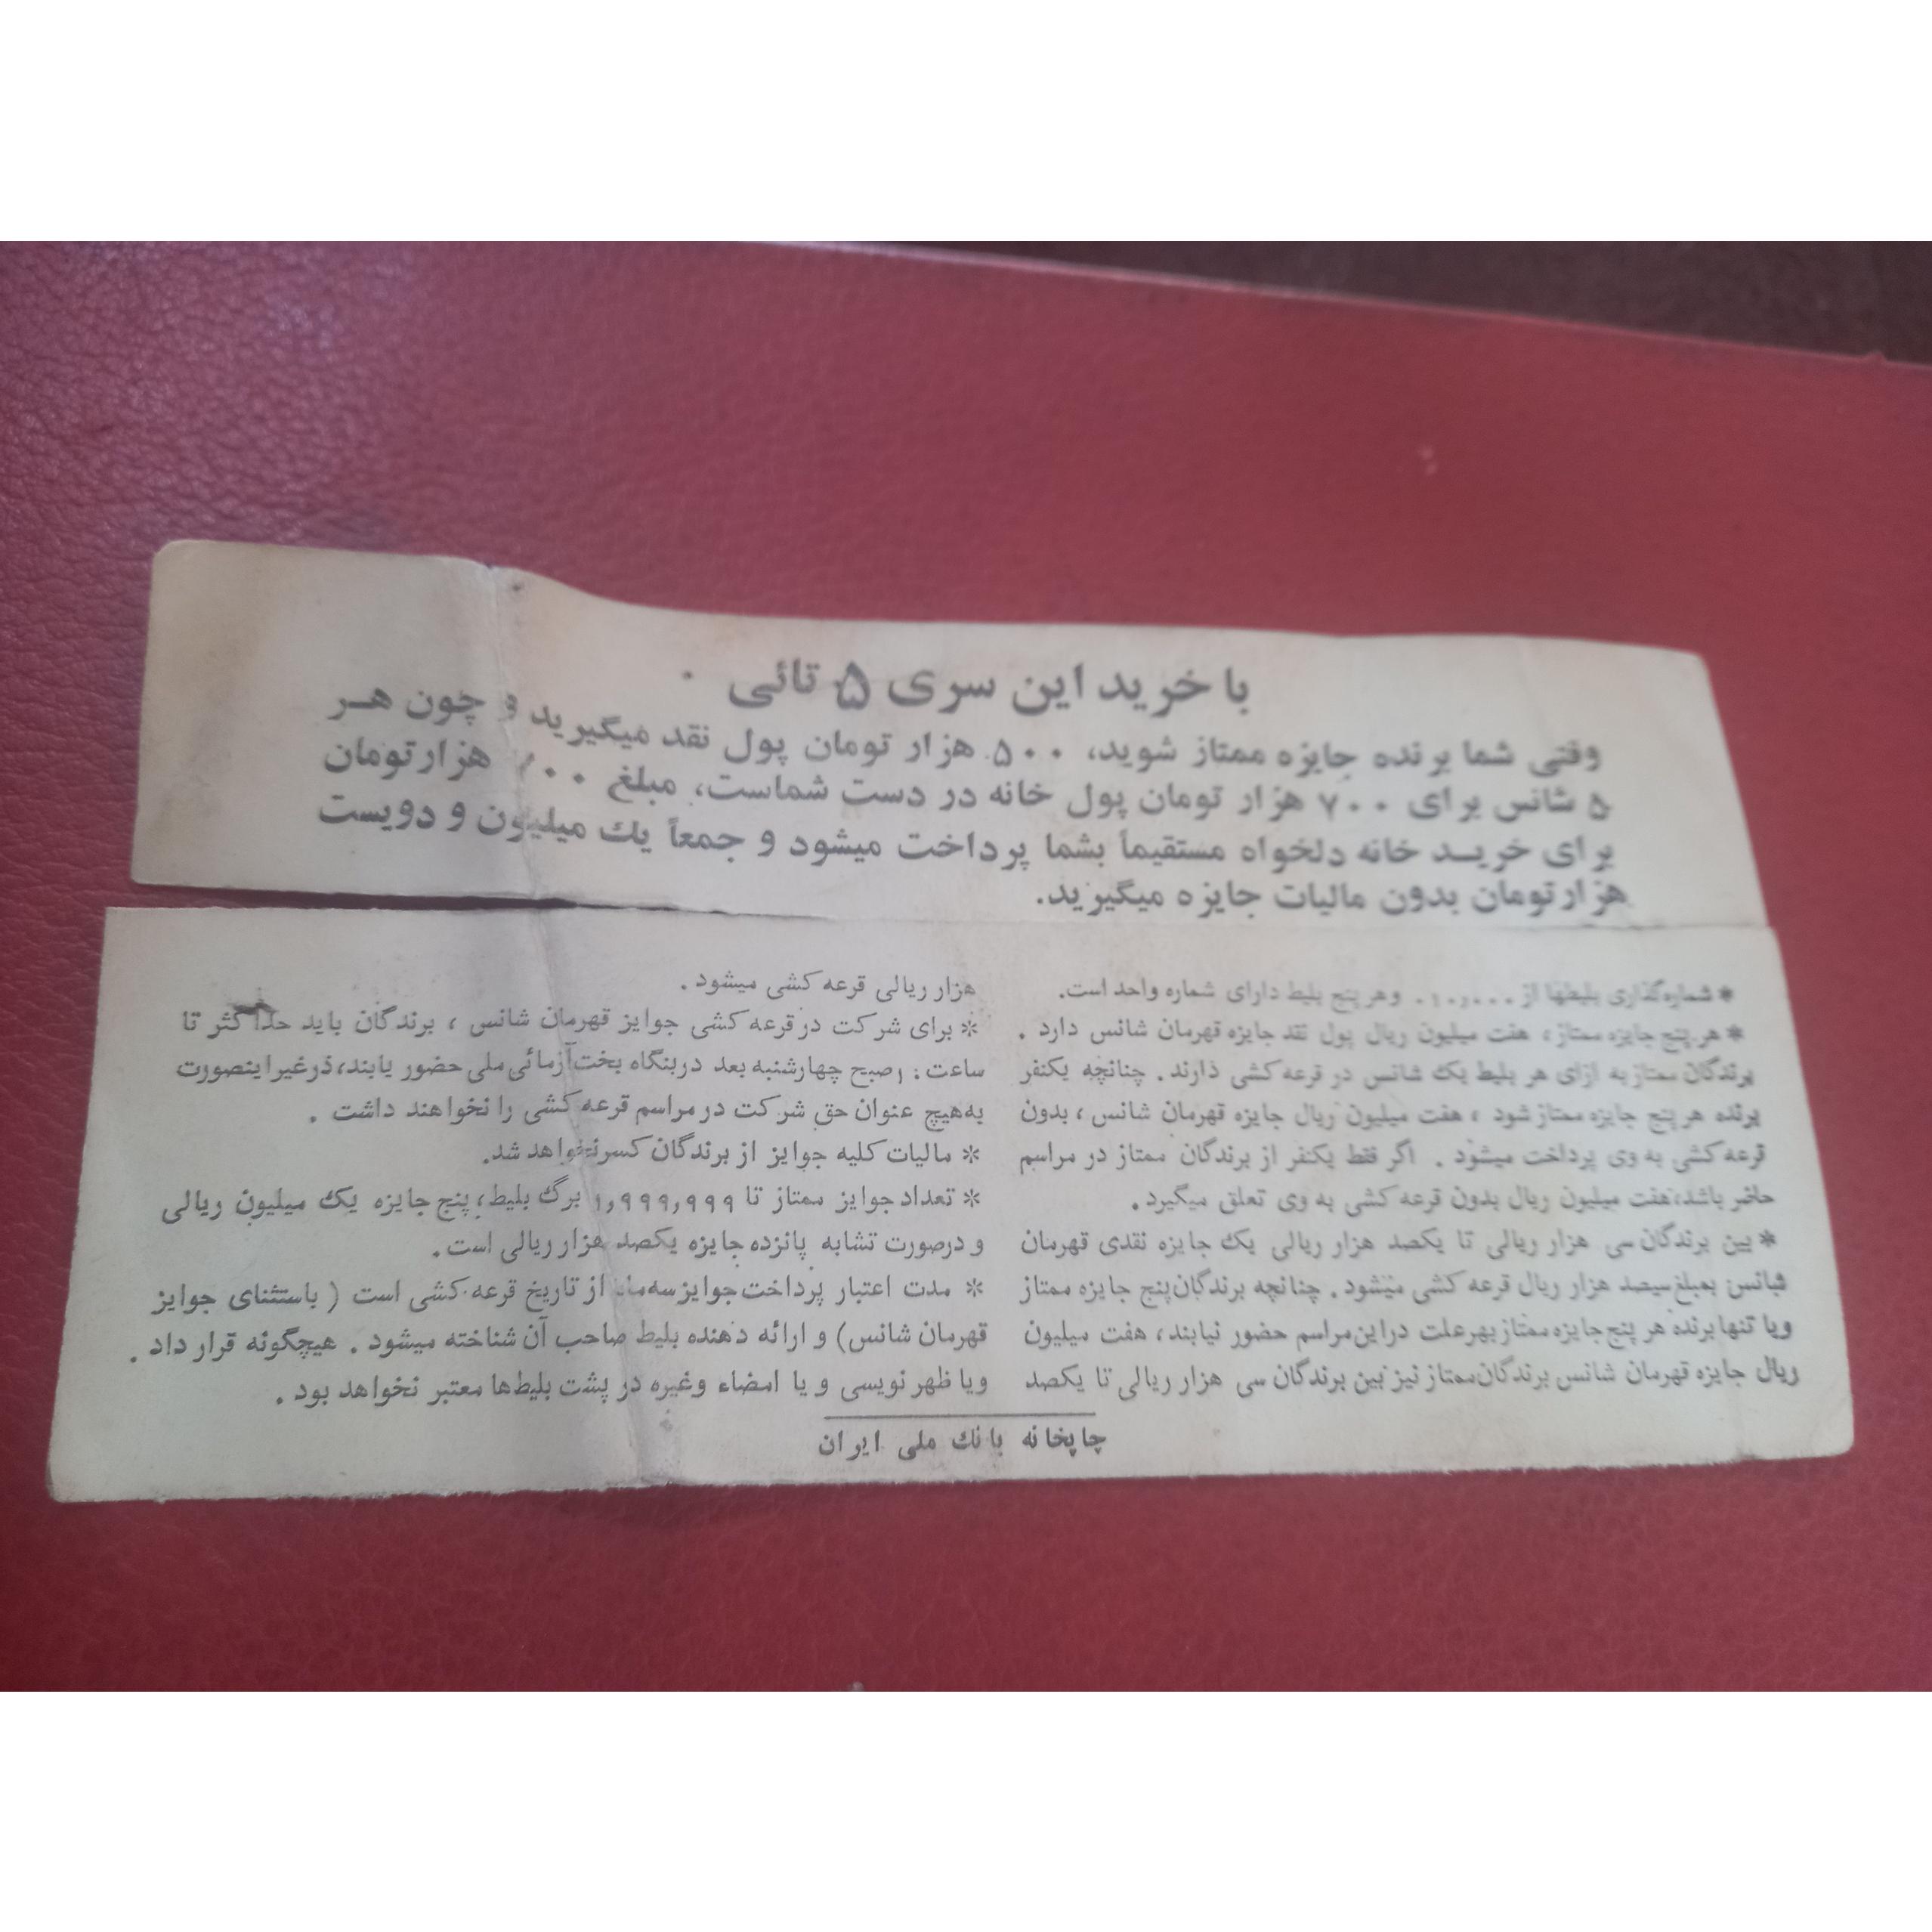 با خرید این سری ۵ تائی
وقتی شما برنده جایزه ممتاز شوید، ۵۰۰ هزار تومان پول نقد میگیرید و چون هر
۵ شانس برای ۷۰۰ هزار تومان پول خانه در دست شماست، مبلغ ۷۰۰ هزار تومان
برای خرید خانه دلخواه مستقیماً بشما پرداخت میشود و جمعاً یك میلیون و دویست
هزار تومان بدون مالیات جایزه میگیرید.
* شماره گذاری بلیطها از ۱۰٫۰۰۰ وهر پنج بلیط دارای شماره واحد است.
* هر پنج جایزه ممتاز، هفت میلیون ریال پول نقد جایزه قهرمان شانس دارد .
برندگان ممتاز به ازای هر بلیط یک شانس در قرعه کشی دارند . چنانچه یکنفر
برنده هر پنج جایزه ممتاز شود ، هفت میلیون ریال جایزه قهرمان شانس ، بدون
قرعه کشی به وی پرداخت میشود . اگر فقط یکنفر از برندگان ممتاز در مراسم
حاضر باشد، هفت میلیون ریال بدون قرعه کشی به وی تعلق میگیرد .
* بین برندگان سی هزار ریالی تا یکصد هزار ریالی یک جایزه نقدی قهرمان
شانس بمبلغ سیصد هزار ریال قرعه کشی میشود . چنانچه برندگان پنج جایزه ممتاز
ویا تنها برنده هر پنج جایزه ممتاز بهر علت در این مراسم حضور نیابند ، هفت میلیون
ریال جایزه قهرمان شانس برندگان ممتاز نیز بین برندگان سی هزار ریالی تا یکصد
هزار ریالی قرعه کشی میشود .
* برای شرکت در قرعه کشی جوایز قهرمان شانس ، برندگان باید حداکثر تا
ساعت ۱۰ صبح چهارشنبه بعد در بنگاه بخت آزمائی ملی حضور یابند، در غیر اینصورت
به هیچ عنوان حق شرکت در مراسم قرعه کشی را نخواهند داشت .
* مالیات کلیه جوایز از برندگان کسر نخواهد شد.
* تعداد جوایز ممتاز تا ۱٫۹۹۹٫۹۹۹ برگ بلیط، پنج جایزه یک میلیون ریالی
و درصورت تشابه پانزده جایزه یکصد هزار ریالی است .
* مدت اعتبار پرداخت جوایز سه ماه از تاریخ قرعه کشی است ( باستثنای جوایز
قهرمان شانس) و ارائه دهنده بلیط صاحب آن شناخته میشود . هیچگونه قرار داد .
ویا ظهر نویسی و یا امضاء وغیره در پشت بلیط‌ها معتبر نخواهد بود .
چاپخانه بانك ملی ایران